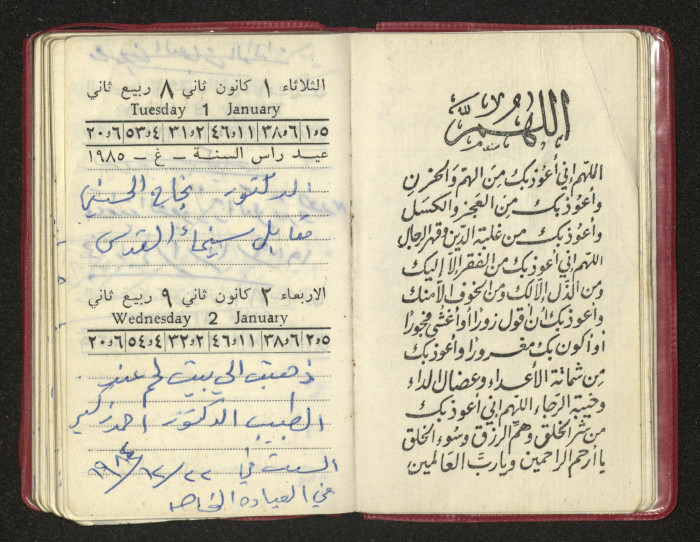 اللهم
اللهم إني أعوذ بك من الهم والحزن
وأعوذ بك من العجز والكسل
وأعوذ بك من غلبة الدين وقهر الرجال
اللهم إني أعوذ بك من الفقر إلا إليك
ومن الذل إلا لك ومن الخوف إلا منك
وأعوذ بك أن أقول زورا أو أغشى فجورا
أو أكون بك مغرورا وأعوذ بك
من شماتة الأعداء وعضال الداء
وخيبة الرجاء اللهم إني أعوذ بك
من شر الخلق وهم الرزق وسوء الخلق
يا أرحم الراحمين ويا رب العالمين
الثلاثاء ١ كانون ثاني ٨ ربيع ثاني
Tuesday 1 January
٢٠و٦ | ٥٣و٤ | ٣١و٢ | ٤٦و١١ | ٣٨و٦ | ١و٥
عيد راس السنة - غ - ١٩٨٥
الدكتور نجاح الحسيني
مقابل سينماء القدس
الاربعاء ٢ كانون ثاني ٩ ربيع ثاني
Wednesday 2 January
٢٠و٦ | ٥٤و٤ | ٣٢و٢ | ٤٦و١١ | ٣٨و٦ | ٢و٥
ذهبت الى بيت لحم عند
الطبيب الدكتور احمد
السبت في ٢٢/١٢/
في العيادة الخاصه